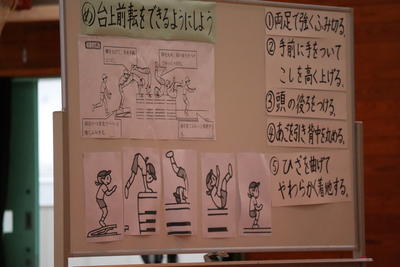 め 台上前転をできるようにしよう
①両足で強くふみ切る。
②手前に手をついて
こしを高く上げる。
③頭の後ろをつける。
④あごを引き背中を丸める。
⑤ひざを曲げて
やわらかく着地する。